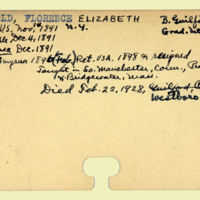 LD, FLORENCE ELIZABETH B. Guilford
U.S. Nov. 1891 N.Y. Grad.
Dec 4, 1891
Dec. 1891
Smyrna Ret. USA. 1898 & resigned
Taught in So. Manchester, Conn.,
& Bridgewater, Mass.
Died Feb. 22, 1928, Guilford,
Westboro